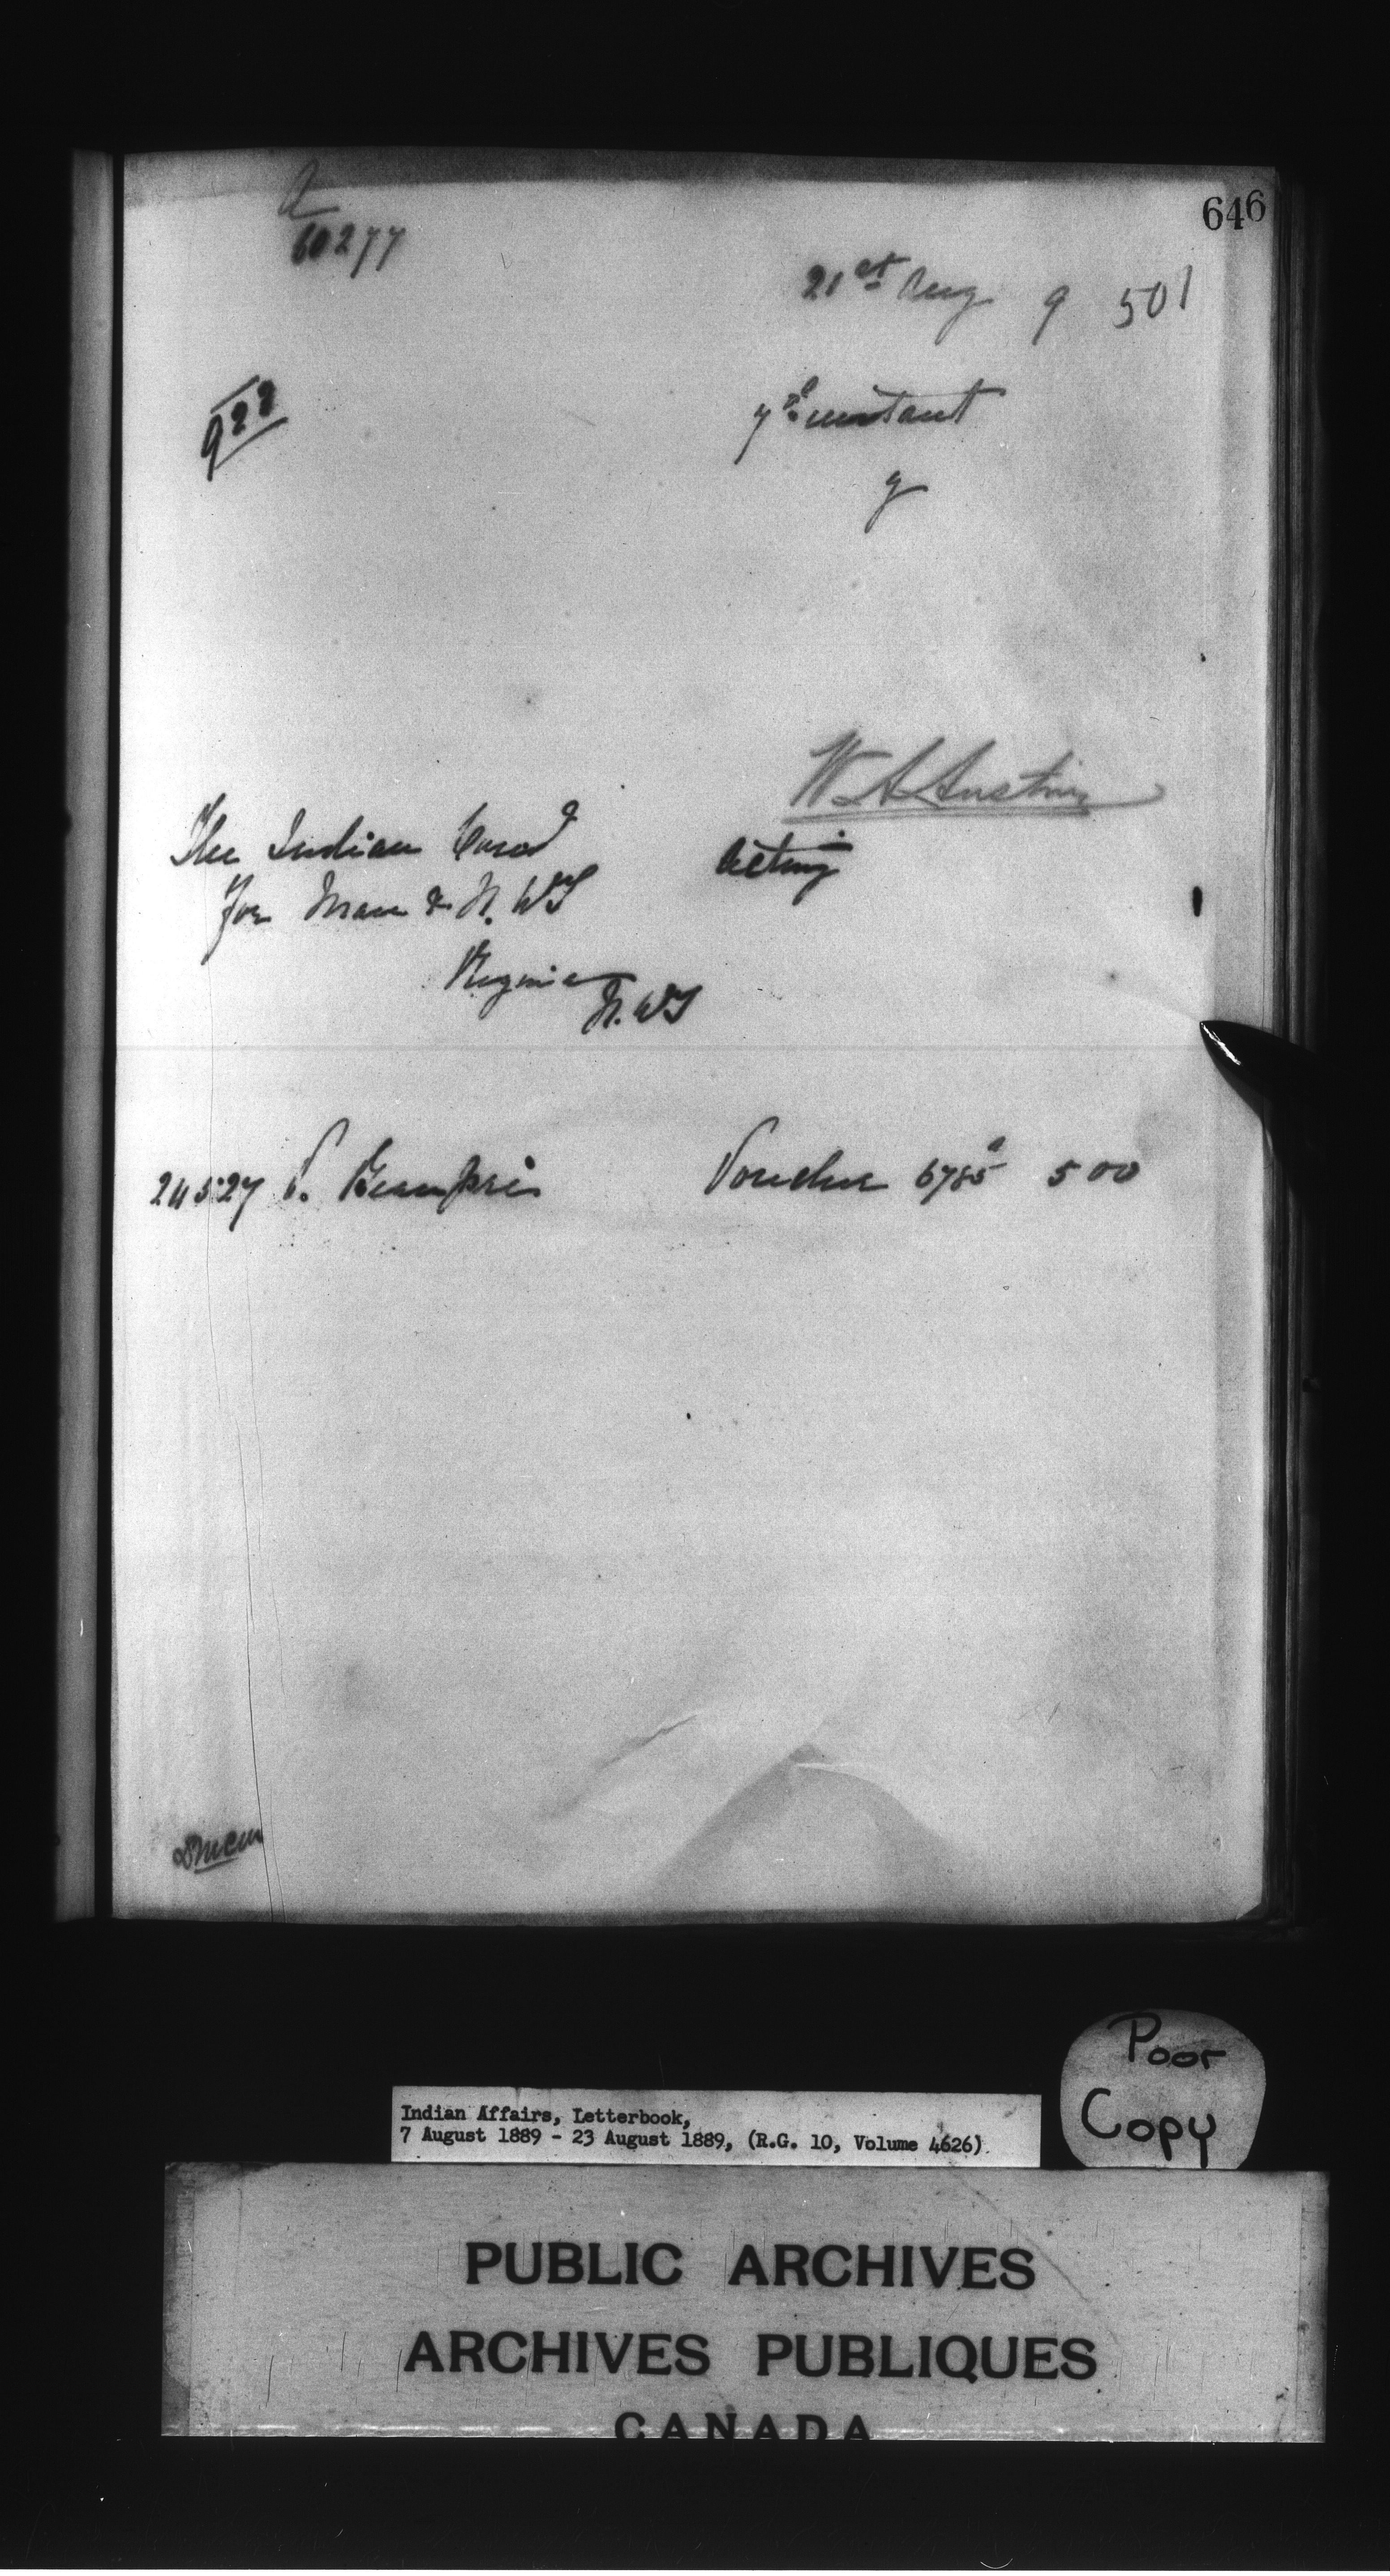 646
60277
21st Aug 9 501
922
7th instant
9
W A Austin
The Indian Comr
Acting
for Man & N. WT
Regina
N. WT
24527 P. Beaupré Voucher 6785 500
Poor
Copy
Indian Affairs, Letterbook,
7 August 1889 - 23 August 1889, (R.G. 10, Volume 4626)
PUBLIC ARCHIVES
ARCHIVES PUBLIQUES
CANADA